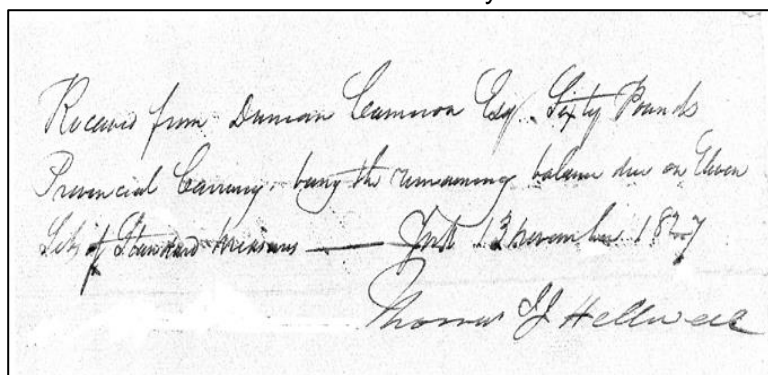 Received from Duncan Cameron Esq. Sixty Pounds
Provincial Currency. being the remaining balance due on Eleven
Sets of Standard Measures —— York 13 November 1827
Thomas Helliwell